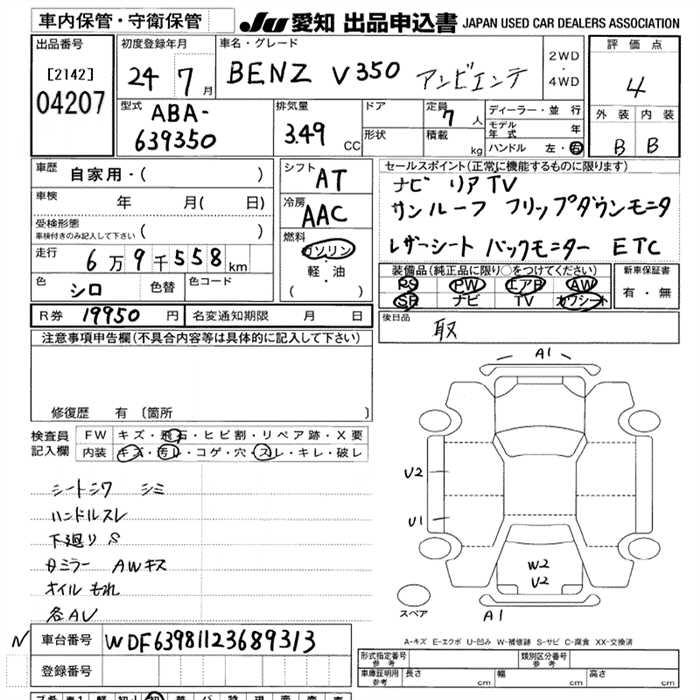 車内保管・守衛保管
JU 愛知 出品申込書 JAPAN USED CAR DEALERS ASSOCIATION
出品番号
[2142]
04207
初度登録年月
24 7 月
車名・グレード
BENZ V350 アンビエンテ
2WD
・
4WD
評価点
4
外装 内装
B B
型式
ABA-
639350
排気量
3.49 CC
ドア
形状
定員
7 人
積載
kg
ディーラー・並行
モデル年式 年
ハンドル 左・右
車歴
自家用・( )
車検
年 月( 日)
受検形態
車検付きのみ記入して下さい ( )
走行
6万9千558km
色
シロ
色替
色コード
シフト
AT
冷房
AAC
燃料
ガソリン
・
軽・油
( )
セールスポイント(正常に機能するものに限ります)
ナビ リアTV
サンルーフ フリップダウンモニタ
レザーシート バックモニター ETC
装備品(純正品に限り○をつけてください)
PS PW エアB AW
SR ナビ TV カワシート
新車保証書
有・無
R券 19950 円
名変通知期限 月 日
後日品
取
注意事項申告欄(不具合内容等は具体的に記入して下さい)
修復歴 有 〔箇所 〕
検査員
記入欄
FW キズ・飛石・ヒビ割・リペア跡・X要
内装 キズ・汚レ・コゲ・穴・スレ・キレ・破レ
シートシワ シミ
ハンドルスレ
下廻りS
ミラー AWキズ
オイルもれ
各AU
A1
U2
U1
W2
U2
A1
スペア
A-キズ E-エクボ U-凹み W-補修跡 S-サビ C-腐食 XX-交換済
N
車台番号 WDF63981123689313
登録番号
形式指定番号
参考
類別区分番号
参考
車庫証明用
参考
長さ cm
幅 cm
高さ cm